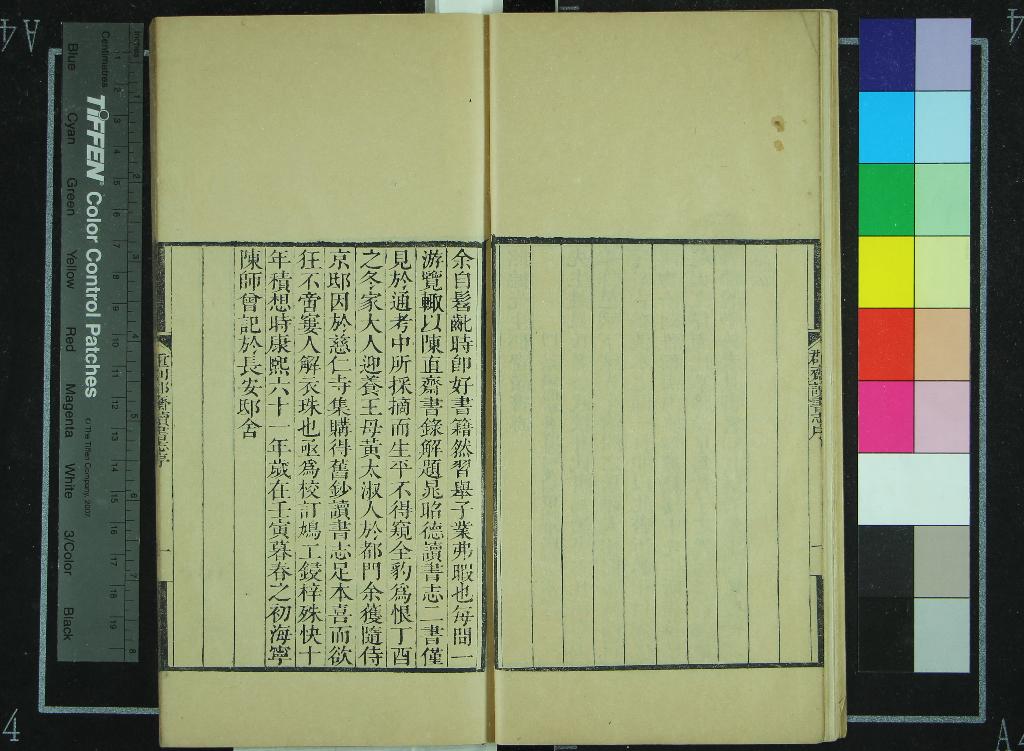 余自髫齔時即好書籍然習舉子業弗暇也每間一
游覽輙以陳直齋書錄解題晁昭德讀書志二書僅
見於通考中所採摘而生平不得窺全豹爲恨丁酉
之冬家大人迎養王母黃太淑人於都門余獲隨侍
京邸因於慈仁寺集購得舊鈔讀書志足本喜而欲
狂不啻窶人解衣珠也亟爲校訂鳩工鋟梓殊快十
年積想時康熙六十一年歲在壬寅暮春之初海寧
陳師曾記於長安邸舍
一
一
Inches
Centimetres
TIFFEN Color Control Patches
© The Tiffen Company, 2007
Blue Cyan Green Yellow Red Magenta White 3/Color Black
A4
4